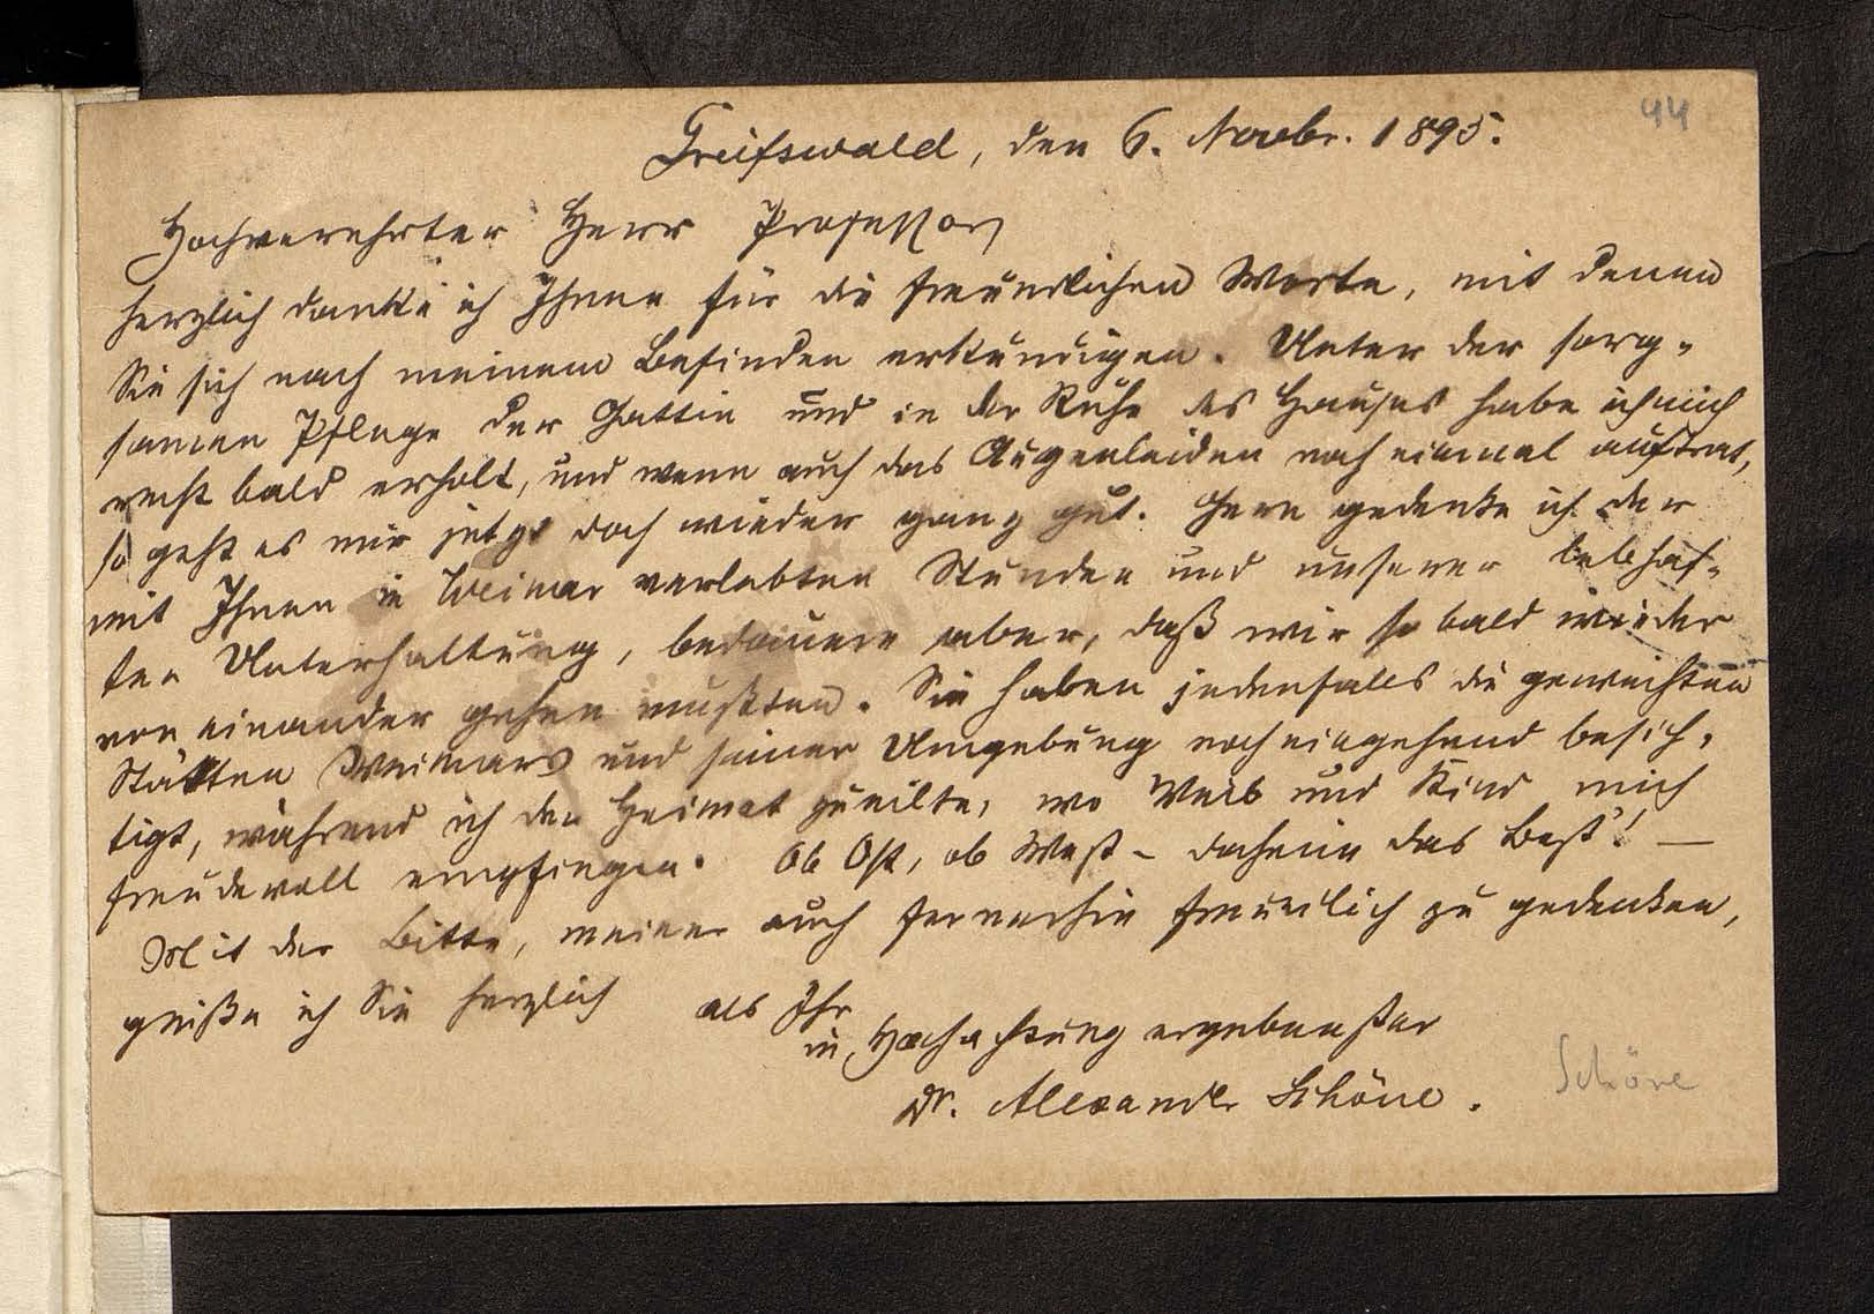 44
Greifswald, den 6. Novbr. 1895.
Hochverehrter Herr Professor,
herzlich danke ich Ihnen für die freundlichen Worte, mit denen
Sie sich nach meinem Befinden erkundigen. Unter der sorg-
samen Pflege der Gattin und in der Ruhe des Hauses habe ich mich
recht bald erholt, und wenn auch das Augenleiden noch einmal auftrat,
so geht es mir jetzt doch wieder ganz gut. Gern gedenke ich der
mit Ihnen in Weimar verlebten Stunden und unserer lebhaf-
ten Unterhaltung, bedauere aber, daß wir so bald wieder
von einander gehen mußten. Sie haben jedenfalls die geweihten
Stätten Weimars und seiner Umgebung noch eingehend besich-
tigt, während ich der Heimat zueilte, wo Weib und Kind mich
freudevoll empfingen. Ob Ost, ob West – daheim das Best'! —
Mit der Bitte, meiner auch fernerhin freundlich zu gedenken,
grüße ich Sie herzlich als Ihr
in Hochachtung ergebenster
Dr. Alexander Schöne.
Schöne